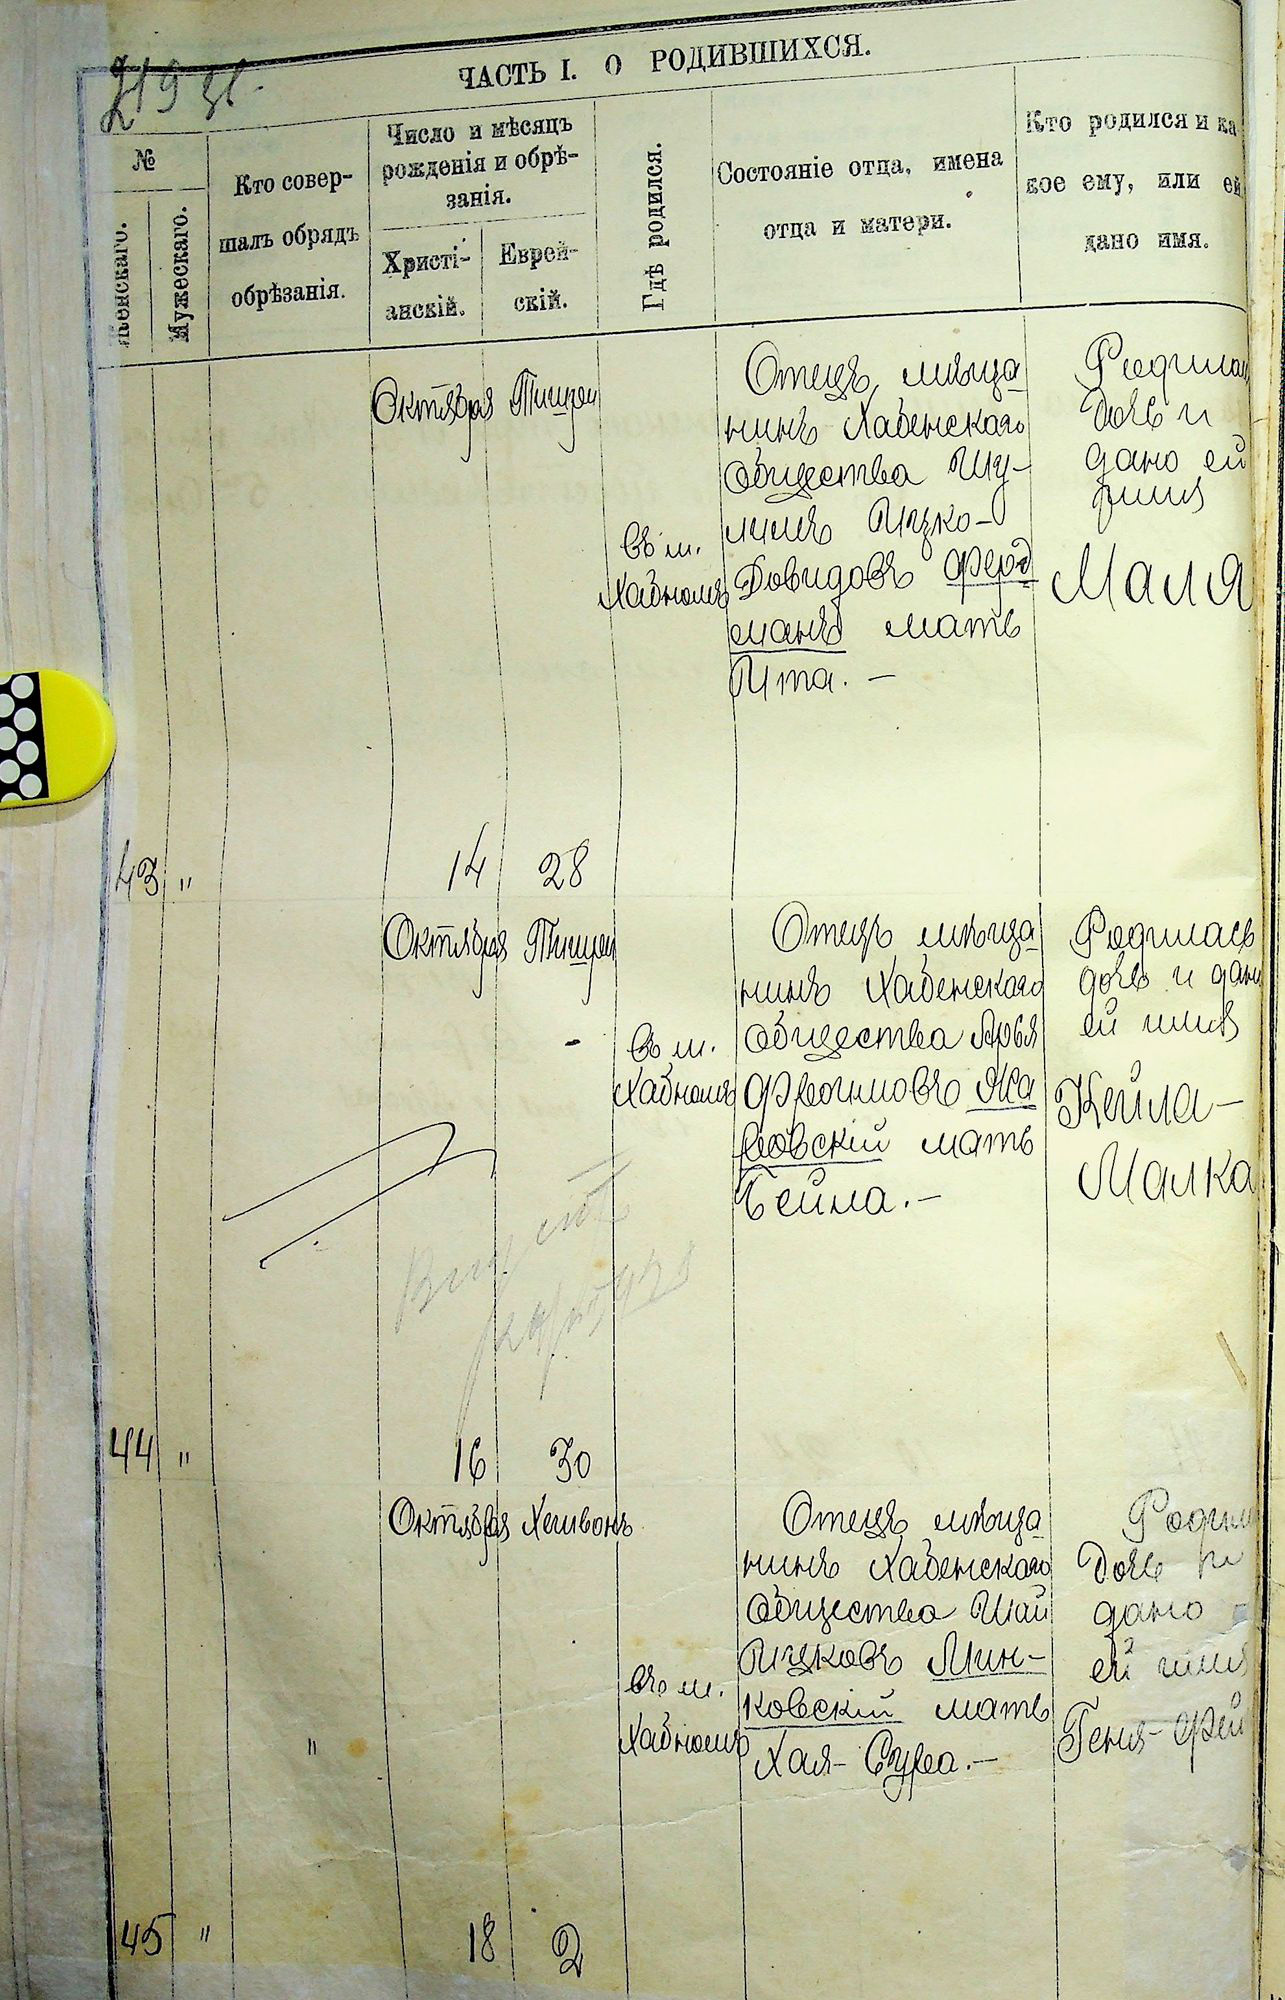 219 зв.
ЧАСТЬ I. О РОДИВШИХСЯ.
№
Женскаго.
Мужескаго.
Кто совер-
шалъ обрядъ
обрѣзанія.
Число и мѣсяцъ
рожденія и обрѣ-
занія.
Христі-
анскій.
Еврей-
скій.
Гдѣ родился.
Состояніе отца, имена
отца и матери.
Кто родился и ка
кое ему, или ей
дано имя.
43
"
Октября
14
Тишреи
28
Въ м.
Хабномъ
Отецъ мѣща
нинъ Хабенскаго
общества Шу-
лимъ Ицко-
Довидовъ Ферд
манъ мать
Ита. -
Родилась
дочь и
дано ей
имя
Маля
44
"
Октября
16
Тишреи
-
30
Въ м.
Хабномъ
Отецъ мѣща
нинъ Хабенскаго
общества Арья
Фроимовъ
мать
Бейла. -
Родилась
дочь и дано
ей имя
Кейла-
Малка
45
"
"
Октября
18
Хешвонъ
2
Въ м.
Хабномъ
Отецъ мѣща
нинъ Хабенскаго
общества Шай
Ицковъ Мин-
ковскій мать
Хая-Сура. -
Родил
дочь и
дано
ей имя
Геня-Фей